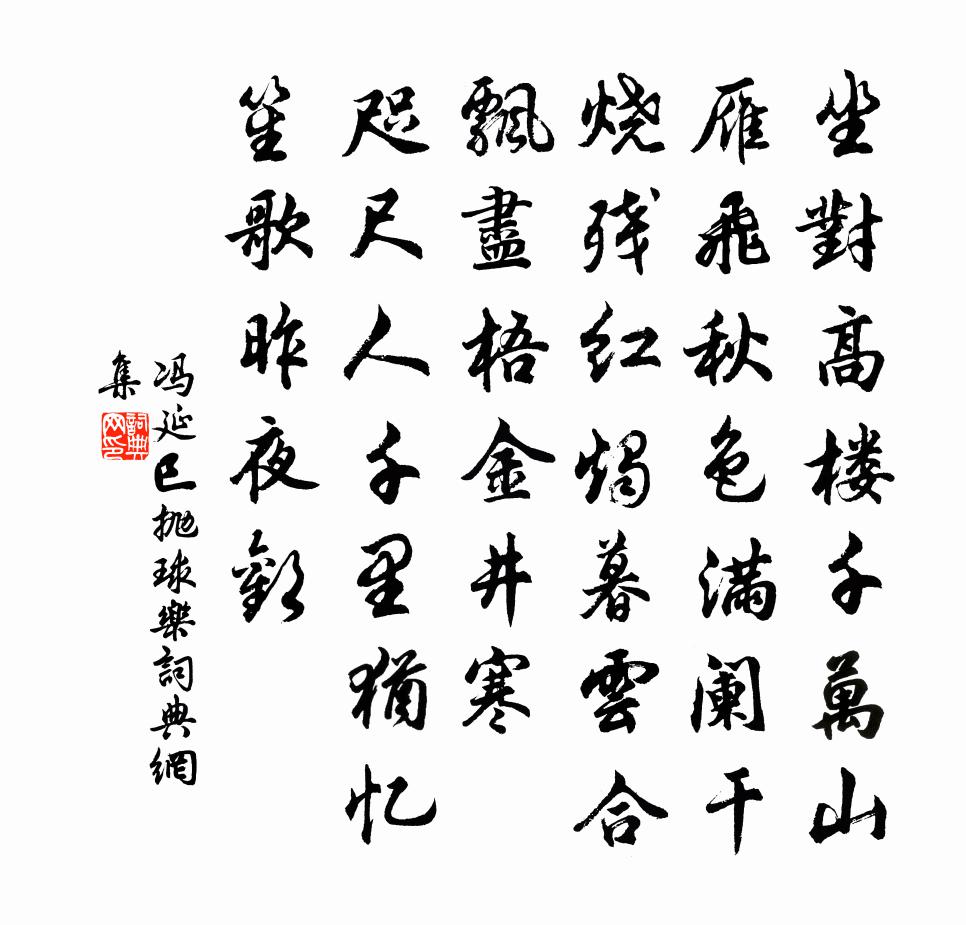 坐對高楼千萬山
雁飛秋色滿阑干
烧残红燭暮雲合
飄盡梧金井寒
咫尺人千里猶忆
笙歌昨夜歡
冯延巳抛球樂詞典網
集
詞典网印